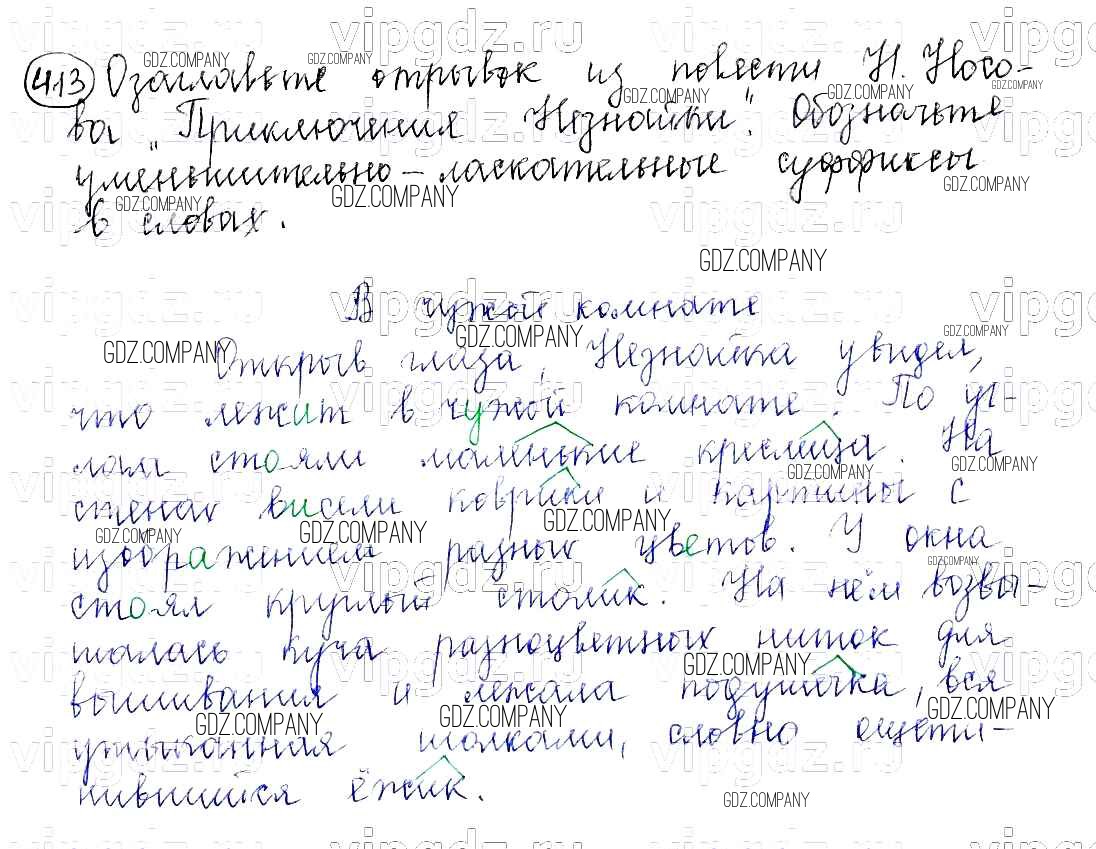 413 Озаглавьте отрывок из повести Н. Носо-
ва „Приключения Незнайки". Обозначьте
уменьшительно-ласкательные суффиксы
в словах.
В чужой комнате
Открыв глаза, Незнайка увидел,
что лежит в чужой комнате. По уг-
лам стояли маленькие креслица. На
стенах висели коврики и картины с
изображением разных цветов. У окна
стоял круглый столик. На нём возвы-
шалась куча разноцветных ниток для
вышивания и лежала подушечка, вся
утыканная иголками, словно ощети-
нившийся ёжик.
vipgdz.ru
GDZ.COMPANY